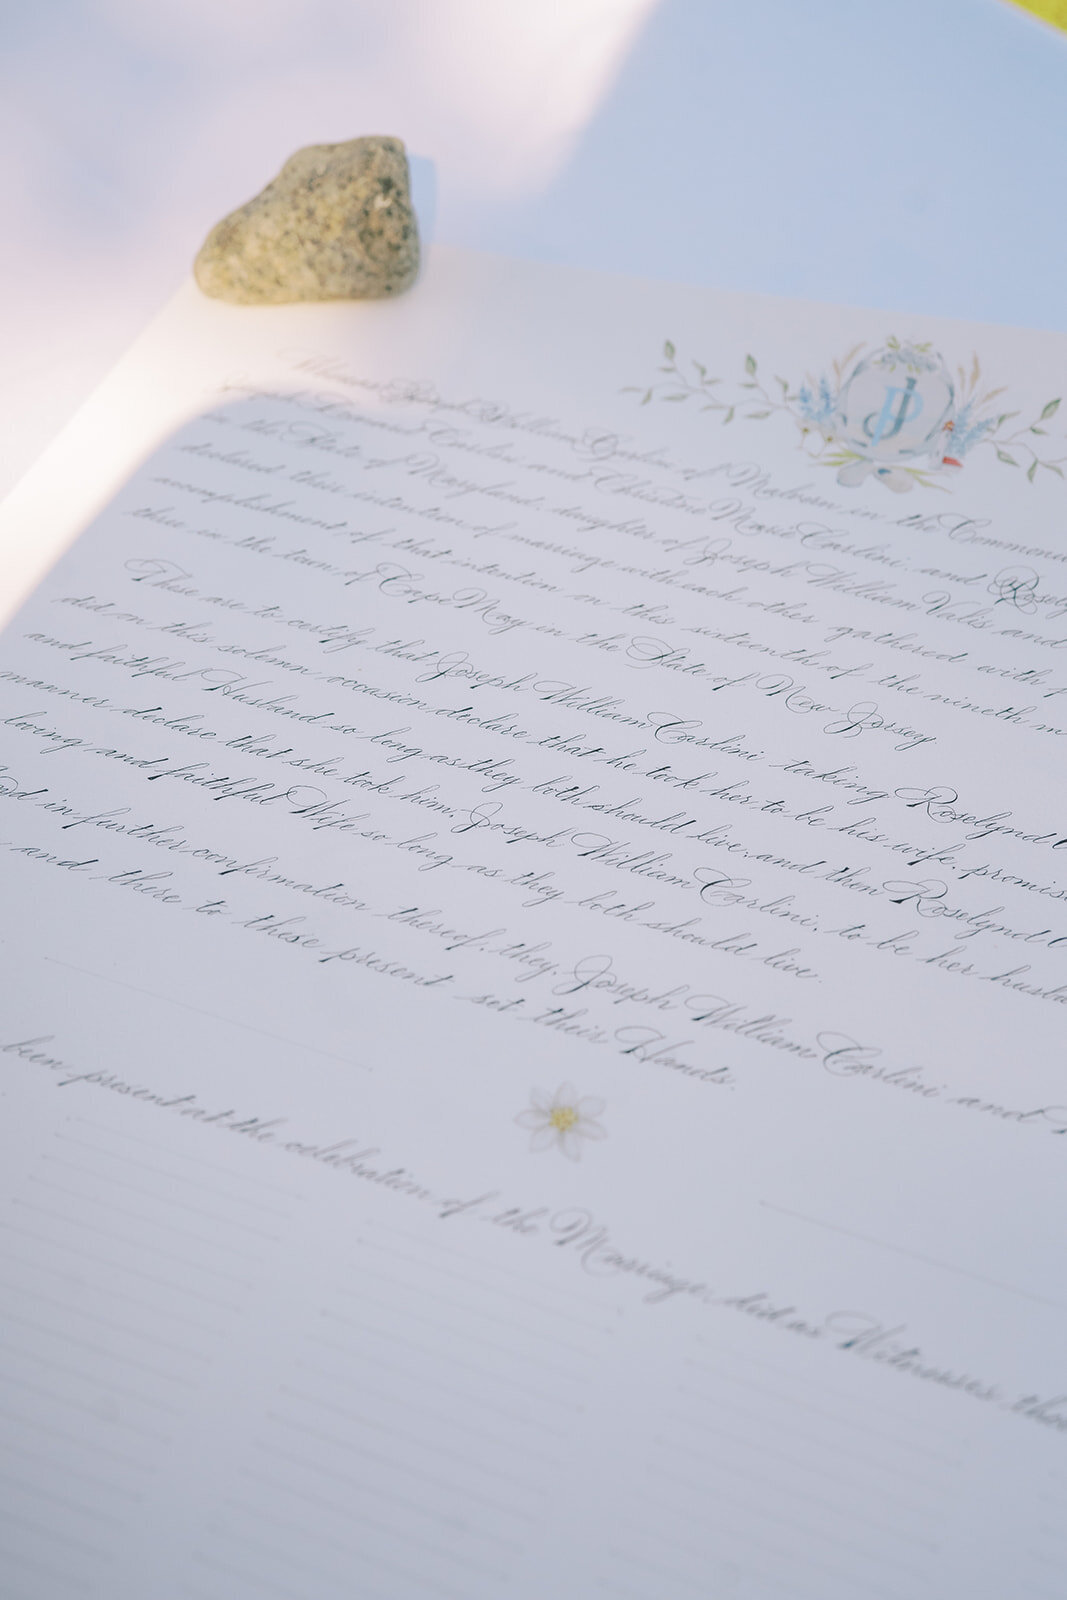 JR
Whereas Joseph William Carlini of Malvern in the Commonw
Joseph Carlini and Christine Marie Carlini, and Rosely
in the State of Maryland, daughter of Joseph William Valis and
declared their intention of marriage with each other gathered with f
accomplishment of that intention on this sixteenth of the nineth m
three in the town of Cape May in the State of New Jersey.
These are to certify that Joseph William Carlini taking Roselynd
did on this solemn occasion declare that he took her to be his wife, promis
and faithful Husband so long as they both should live, and then Roselynd
manner declare that she took him, Joseph William Carlini, to be her husba
loving and faithful Wife so long as they both should live.
And in further confirmation thereof, they, Joseph William Carlini and
and there to these present set their Hands.
been present at the celebration of the Marriage, did as Witnesses